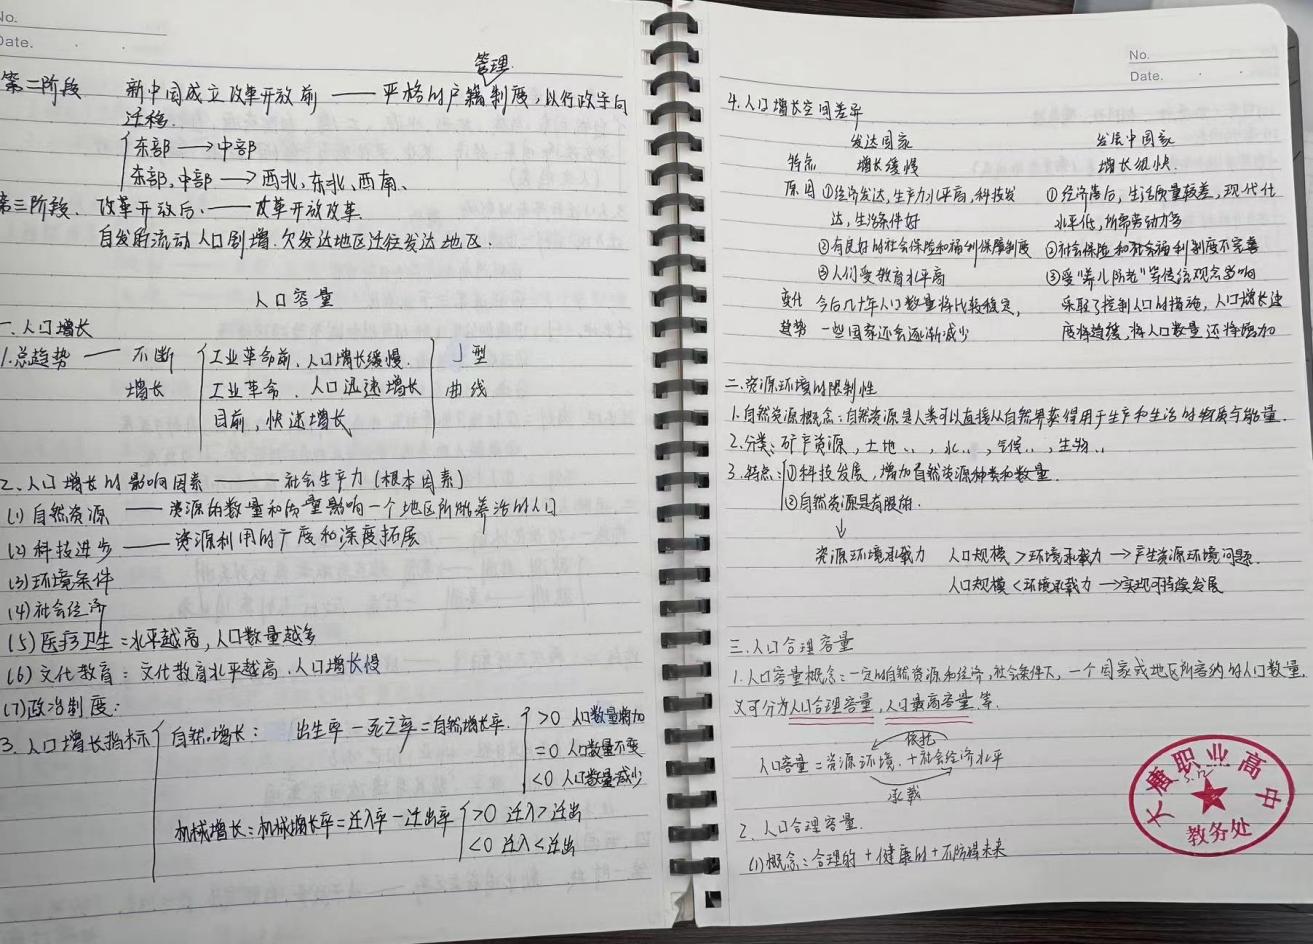 No.
Date.
管理
第二阶段 新中国成立改革开放前 —— 严格的户籍制度，以行政导向
迁移.
东部 → 中部
东部,中部 → 西北,东北、西南、
第三阶段. 改革开放后. —— 改革开放改革
自发的流动人口剧增.欠发达地区迁往发达地区.
人口容量
一.人口增长
1.总趋势 — 不断 工业革命前、人口增长缓慢. J型
增长 工业革命、人口迅速增长 曲线
目前，快速增长
2.人口增长的影响因素 —— 社会生产力(根本因素)
(1)自然资源 —— 资源的数量和质量影响一个地区所能养活的人口
(2)科技进步 —— 资源利用的广度和深度拓展
(3)环境条件
(4)社会经济
(5)医疗卫生=水平越高,人口数量越多
(6)文化教育：文化教育水平越高.人口增长慢
(7)政治制度:
3.人口增长指标 自然增长： 出生率－死亡率=自然增长率. >0 人口数量增加
=0 人口数量不变
<0 人口数量减少
机械增长：机械增长率=迁入率－迁出率 >0 迁入>迁出
<0 迁入<迁出
No.
Date.
4.人口增长空间差异
发达国家 发展中国家
特点 增长缓慢 增长很快.
原因 ①经济发达,生产力水平高,科技发 ①经济落后，生活质量较差,现代化
达，生活条件好 水平低,所需劳动力多
②有良好的社会保险和福利保障制度 ②社会保险和社会福利制度不完善
③人们受教育水平高 ③受"养儿防老"等传统观念影响
变化 今后几十年人口数量将比较稳定， 采取了控制人口的措施，人口增长速
趋势 一些国家还会逐渐减少 度将趋缓,将人口数量还将增加
二.资源环境的限制性
1.自然资源概念：自然资源是人类可以直接从自然界获得用于生产和生活的物质与能量.
2.分类：矿产资源，土地、、，水、、，气候、、，生物、、
3.特点：①科技发展，增加自然资源种类和数量.
②自然资源是有限的.
↓
资源环境承载力 人口规模>环境承载力 → 产生资源环境问题.
人口规模<环境承载力 → 实现可持续发展
三.人口合理容量
1.人口容量概念：一定的自然资源和经济,社会条件下，一个国家或地区所容纳的人口数量,
又可分为人口合理容量,人口最高容量等.
依托
人口容量=资源环境.+社会经济水平
承载
2.人口合理容量.
(1)概念：合理的+健康的+不妨碍未来
大唐职业高中
5.12
教务处